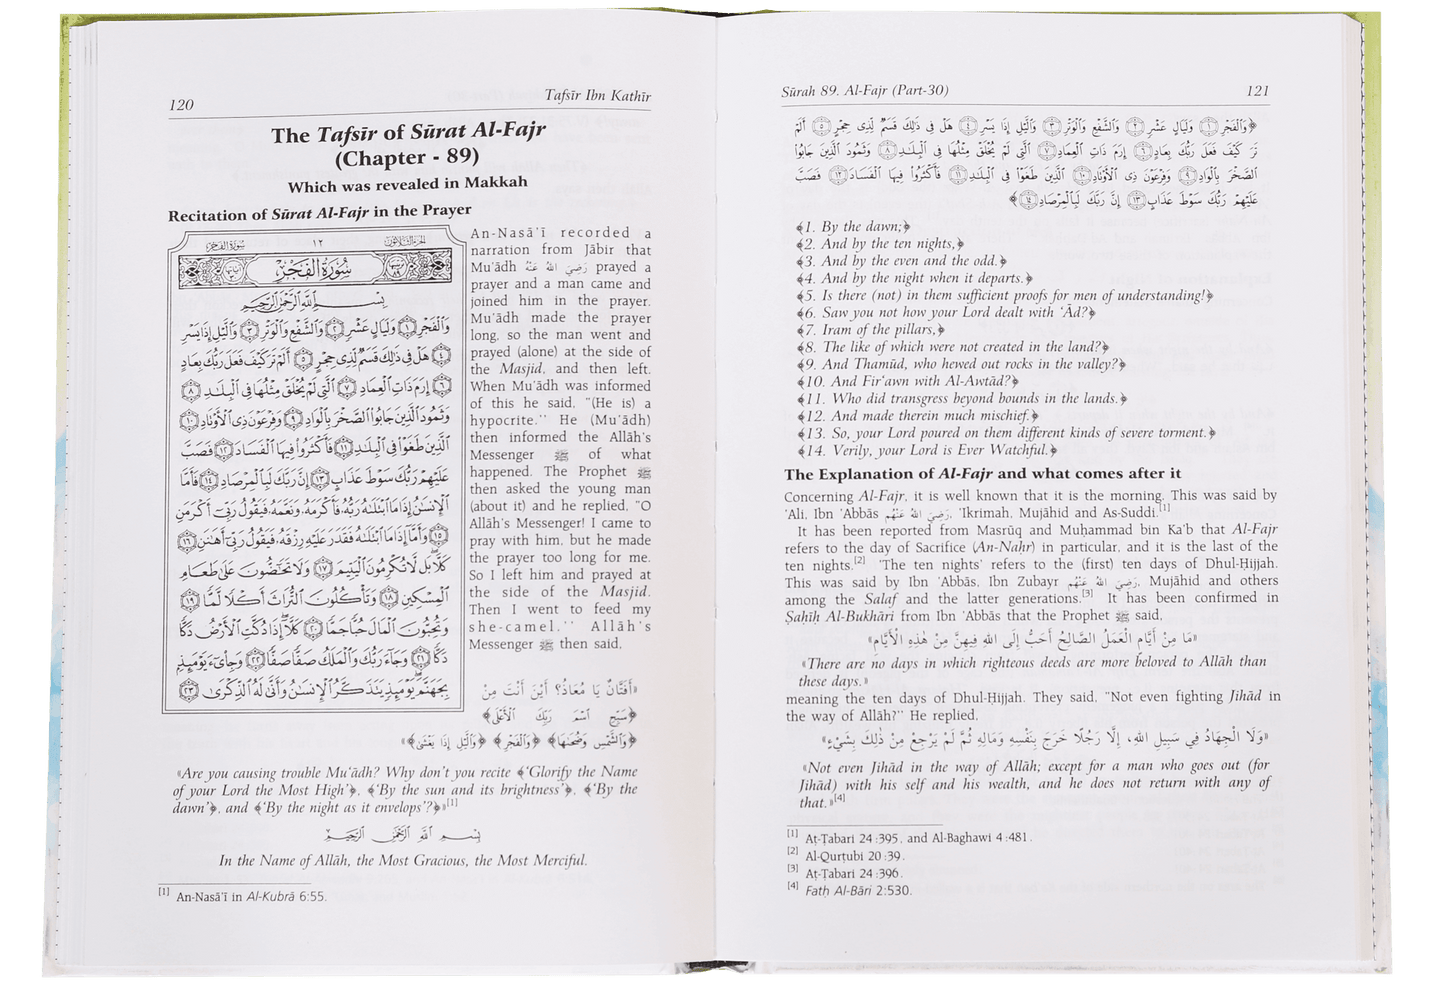 120
Tafsīr Ibn Kathīr
The Tafsīr of Sūrat Al-Fajr
(Chapter - 89)
Which was revealed in Makkah
Recitation of Sūrat Al-Fajr in the Prayer
سُورَةُ الفَجْرِ
١٢
الجزء الثلاثون
سُورَةُ الْفَجْرِ
بِسْمِ اللَّهِ الرَّحْمَٰنِ الرَّحِيمِ
وَالْفَجْرِ ١ وَلَيَالٍ عَشْرٍ ٢ وَالشَّفْعِ وَالْوَتْرِ ٣ وَاللَّيْلِ إِذَا يَسْرِ
٤ هَلْ فِي ذَٰلِكَ قَسَمٌ لِّذِي حِجْرٍ ٥ أَلَمْ تَرَ كَيْفَ فَعَلَ رَبُّكَ بِعَادٍ
٦ إِرَمَ ذَاتِ الْعِمَادِ ٧ الَّتِي لَمْ يُخْلَقْ مِثْلُهَا فِي الْبِلَادِ ٨
وَثَمُودَ الَّذِينَ جَابُوا الصَّخْرَ بِالْوَادِ ٩ وَفِرْعَوْنَ ذِي الْأَوْتَادِ ١٠
الَّذِينَ طَغَوْا فِي الْبِلَادِ ١١ فَأَكْثَرُوا فِيهَا الْفَسَادَ ١٢ فَصَبَّ
عَلَيْهِمْ رَبُّكَ سَوْطَ عَذَابٍ ١٣ إِنَّ رَبَّكَ لَبِالْمِرْصَادِ ١٤ فَأَمَّا
الْإِنسَانُ إِذَا مَا ابْتَلَاهُ رَبُّهُ فَأَكْرَمَهُ وَنَعَّمَهُ فَيَقُولُ رَبِّي أَكْرَمَنِ
١٥ وَأَمَّا إِذَا مَا ابْتَلَاهُ فَقَدَرَ عَلَيْهِ رِزْقَهُ فَيَقُولُ رَبِّي أَهَانَنِ ١٦
كَلَّا بَل لَّا تُكْرِمُونَ الْيَتِيمَ ١٧ وَلَا تَحَاضُّونَ عَلَىٰ طَعَامِ
الْمِسْكِينِ ١٨ وَتَأْكُلُونَ التُّرَاثَ أَكْلًا لَّمًّا ١٩
وَتُحِبُّونَ الْمَالَ حُبًّا جَمًّا ٢٠ كَلَّا إِذَا دُكَّتِ الْأَرْضُ دَكًّا
دَكًّا ٢١ وَجَاءَ رَبُّكَ وَالْمَلَكُ صَفًّا صَفًّا ٢٢ وَجِيءَ يَوْمَئِذٍ
بِجَهَنَّمَ يَوْمَئِذٍ يَتَذَكَّرُ الْإِنسَانُ وَأَنَّىٰ لَهُ الذِّكْرَىٰ ٢٣
An-Nasā'ī recorded a
narration from Jābir that
Mu'ādh رَضِيَ اللهُ عَنْهُ prayed a
prayer and a man came and
joined him in the prayer.
Mu'ādh made the prayer
long, so the man went and
prayed (alone) at the side of
the Masjid, and then left.
When Mu'ādh was informed
of this he said, "(He is) a
hypocrite." He (Mu'ādh)
then informed the Allāh's
Messenger ﷺ of what
happened. The Prophet ﷺ
then asked the young man
(about it) and he replied, "O
Allāh's Messenger! I came to
pray with him, but he made
the prayer too long for me.
So I left him and prayed at
the side of the Masjid.
Then I went to feed my
she-camel." Allāh's
Messenger ﷺ then said,
«أَفَتَّانٌ يَا مُعَاذُ؟ أَيْنَ أَنْتَ مِنْ
﴿سَبِّحِ اسْمَ رَبِّكَ الْأَعْلَى﴾
﴿وَالشَّمْسِ وَضُحَاهَا﴾ ﴿وَالْفَجْرِ﴾ ﴿وَاللَّيْلِ إِذَا يَغْشَى﴾»
«Are you causing trouble Mu'ādh? Why don't you recite ﴾'Glorify the Name
of your Lord the Most High'﴿, ﴾'By the sun and its brightness'﴿, ﴾'By the
dawn'﴿, and ﴾'By the night as it envelops'?﴿»[1]
بِسْمِ اللَّهِ الرَّحْمَٰنِ الرَّحِيمِ
In the Name of Allāh, the Most Gracious, the Most Merciful.
[1] An-Nasā'ī in Al-Kubrā 6:55.
Sūrah 89. Al-Fajr (Part-30)
121
﴿وَالْفَجْرِ ١ وَلَيَالٍ عَشْرٍ ٢ وَالشَّفْعِ وَالْوَتْرِ ٣ وَاللَّيْلِ إِذَا يَسْرِ ٤ هَلْ فِي ذَٰلِكَ قَسَمٌ لِّذِي حِجْرٍ ٥ أَلَمْ
تَرَ كَيْفَ فَعَلَ رَبُّكَ بِعَادٍ ٦ إِرَمَ ذَاتِ الْعِمَادِ ٧ الَّتِي لَمْ يُخْلَقْ مِثْلُهَا فِي الْبِلَادِ ٨ وَثَمُودَ الَّذِينَ جَابُوا
الصَّخْرَ بِالْوَادِ ٩ وَفِرْعَوْنَ ذِي الْأَوْتَادِ ١٠ الَّذِينَ طَغَوْا فِي الْبِلَادِ ١١ فَأَكْثَرُوا فِيهَا الْفَسَادَ ١٢ فَصَبَّ
عَلَيْهِمْ رَبُّكَ سَوْطَ عَذَابٍ ١٣ إِنَّ رَبَّكَ لَبِالْمِرْصَادِ ١٤﴾
﴾1. By the dawn;﴿
﴾2. And by the ten nights,﴿
﴾3. And by the even and the odd.﴿
﴾4. And by the night when it departs.﴿
﴾5. Is there (not) in them sufficient proofs for men of understanding!﴿
﴾6. Saw you not how your Lord dealt with 'Ād?﴿
﴾7. Iram of the pillars,﴿
﴾8. The like of which were not created in the land?﴿
﴾9. And Thamūd, who hewed out rocks in the valley?﴿
﴾10. And Fir'awn with Al-Awtād?﴿
﴾11. Who did transgress beyond bounds in the lands.﴿
﴾12. And made therein much mischief.﴿
﴾13. So, your Lord poured on them different kinds of severe torment.﴿
﴾14. Verily, your Lord is Ever Watchful.﴿
The Explanation of Al-Fajr and what comes after it
Concerning Al-Fajr, it is well known that it is the morning. This was said by
'Ali, Ibn 'Abbās رَضِيَ اللهُ عَنْهُم, 'Ikrimah, Mujāhid and As-Suddi.[1]
It has been reported from Masrūq and Muḥammad bin Ka'b that Al-Fajr
refers to the day of Sacrifice (An-Naḥr) in particular, and it is the last of the
ten nights.[2] 'The ten nights' refers to the (first) ten days of Dhul-Ḥijjah.
This was said by Ibn 'Abbās, Ibn Zubayr رَضِيَ اللهُ عَنْهُم, Mujāhid and others
among the Salaf and the latter generations.[3] It has been confirmed in
Ṣaḥīḥ Al-Bukhāri from Ibn 'Abbās that the Prophet ﷺ said,
«مَا مِنْ أَيَّامٍ الْعَمَلُ الصَّالِحُ أَحَبُّ إِلَى اللهِ فِيهِنَّ مِنْ هٰذِهِ الْأَيَّامِ»
«There are no days in which righteous deeds are more beloved to Allāh than
these days.»
meaning the ten days of Dhul-Ḥijjah. They said, "Not even fighting Jihād in
the way of Allāh?" He replied,
«وَلَا الْجِهَادُ فِي سَبِيلِ اللهِ، إِلَّا رَجُلًا خَرَجَ بِنَفْسِهِ وَمَالِهِ ثُمَّ لَمْ يَرْجِعْ مِنْ ذٰلِكَ بِشَيْءٍ»
«Not even Jihād in the way of Allāh; except for a man who goes out (for
Jihād) with his self and his wealth, and he does not return with any of
that.»[4]
[1] Aṭ-Ṭabari 24:395, and Al-Baghawi 4:481.
[2] Al-Qurṭubi 20:39.
[3] Aṭ-Ṭabari 24:396.
[4] Fatḥ Al-Bāri 2:530.